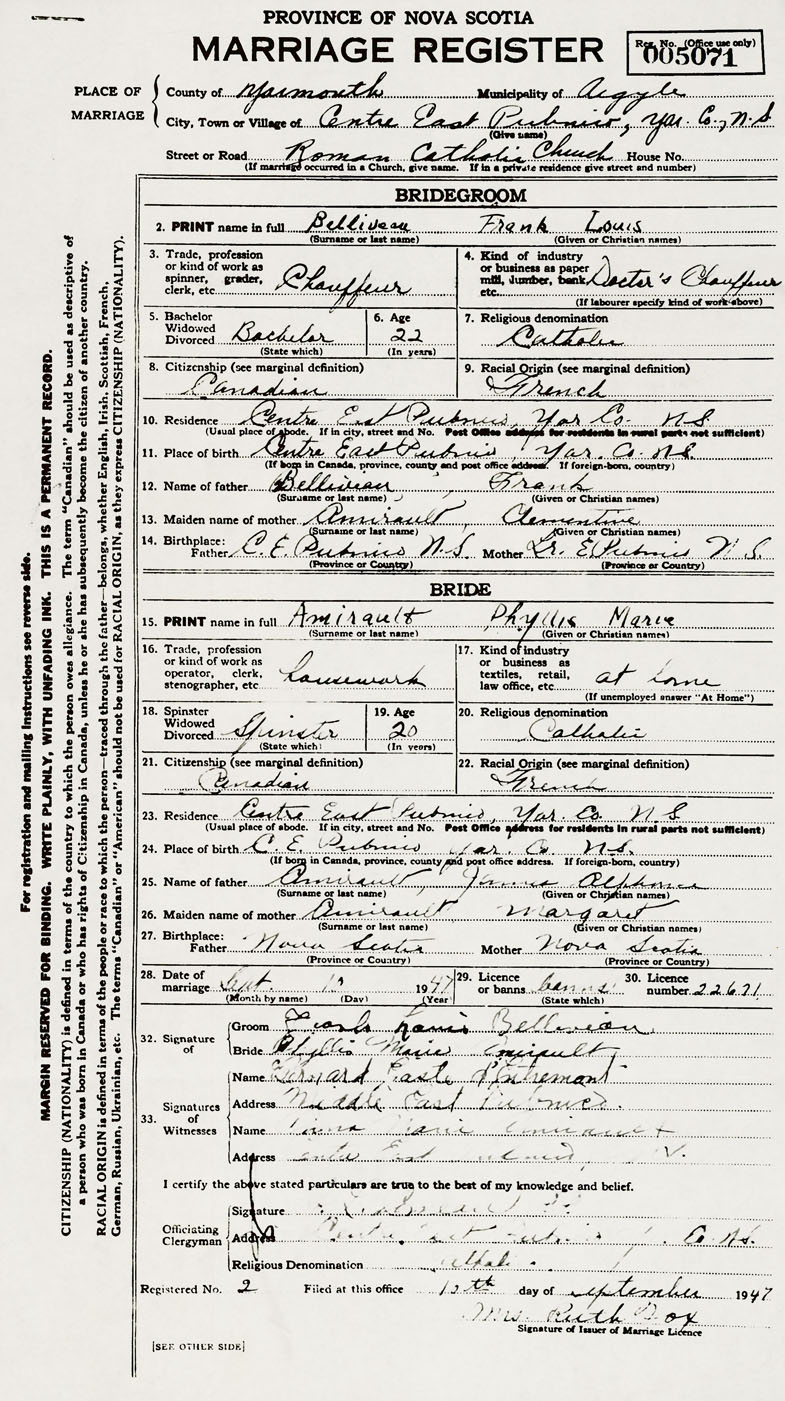 PROVINCE OF NOVA SCOTIA
MARRIAGE REGISTER
Reg. No. (Office use only)
005071
PLACE OF MARRIAGE
County of Yarmouth Municipality of Argyle
City, Town or Village of Centre East Pubnico, Yar. Co., N.S
(Give name)
Street or Road Roman Catholic Church House No.
(If marriage occurred in a Church, give name. If in a private residence give street and number)
BRIDEGROOM
2. PRINT name in full Belliveau Frank Louis
(Surname or last name) (Given or Christian names)
3. Trade, profession or kind of work as spinner, grader, clerk, etc. Chauffeur
4. Kind of industry or business as paper mill, lumber, bank, etc. Doctor's Chauffeur
(If labourer specify kind of work above)
5. Bachelor Widowed Divorced Bachelor
(State which)
6. Age 22
(In years)
7. Religious denomination
Catholic
8. Citizenship (see marginal definition)
Canadian
9. Racial Origin (see marginal definition)
French
10. Residence Centre East Pubnico, Yar Co. N.S
(Usual place of abode. If in city, street and No. Post Office address for residents in rural parts not sufficient)
11. Place of birth Centre East Pubnico, Yar. Co. N.S.
(If born in Canada, province, county and post office address. If foreign-born, country)
12. Name of father Belliveau, Frank
(Surname or last name) (Given or Christian names)
13. Maiden name of mother Amirault, Clementine
(Surname or last name) (Given or Christian names)
14. Birthplace: Father C. E. Pubnico N.S. Mother Lr. E Pubnico N.S.
(Province or Country) (Province or Country)
BRIDE
15. PRINT name in full Amirault Phyllis Marie
(Surname or last name) (Given or Christian names)
16. Trade, profession or kind of work as operator, clerk, stenographer, etc. housework
17. Kind of industry or business as textiles, retail, law office, etc. at home
(If unemployed answer "At Home")
18. Spinster Widowed Divorced Spinster
(State which)
19. Age 20
(In years)
20. Religious denomination
Catholic
21. Citizenship (see marginal definition)
Canadian
22. Racial Origin (see marginal definition)
French
23. Residence Centre East Pubnico, Yar. Co. N S
(Usual place of abode. If in city, street and No. Post Office address for residents in rural parts not sufficient)
24. Place of birth C. E. Pubnico Yar. Co. N.S.
(If born in Canada, province, county and post office address. If foreign-born, country)
25. Name of father Amirault, James
(Surname or last name) (Given or Christian names)
26. Maiden name of mother Amirault Margaret
(Surname or last name) (Given or Christian names)
27. Birthplace: Father Nova Scotia Mother Nova Scotia
(Province or Country) (Province or Country)
28. Date of marriage Sept. 1947
(Month by name) (Day) (Year)
29. Licence or banns banns
(State which)
30. Licence number 22671
32. Signature of
Groom Frank Louis Belliveau
Bride Phyllis Marie Amirault
33. Signatures of Witnesses
Name d'Entremont
Address Middle East Pubnico.
Name Marie Amirault
Address Centre East
I certify the above stated particulars are true to the best of my knowledge and belief.
Officiating Clergyman
Signature
Address Centre East Pubnico Co. N.S.
Religious Denomination Catholic
Registered No. 2 Filed at this office day of September 1947
Mrs. Ruth Fox
Signature of Issuer of Marriage Licence
[SEE OTHER SIDE]
For registration and mailing instructions see reverse side.
MARGIN RESERVED FOR BINDING. WRITE PLAINLY, WITH UNFADING INK. THIS IS A PERMANENT RECORD.
CITIZENSHIP (NATIONALITY) is defined in terms of the country to which the person owes allegiance. The term "Canadian" should be used as descriptive of
a person who was born in Canada or who has rights of Citizenship in Canada, unless he or she has subsequently become the citizen of another country.
RACIAL ORIGIN is defined in terms of the people or race to which the person—traced through the father—belongs, whether English, Irish, Scottish, French,
German, Russian, Ukrainian, etc. The terms "Canadian" or "American" should not be used for RACIAL ORIGIN, as they express CITIZENSHIP (NATIONALITY).